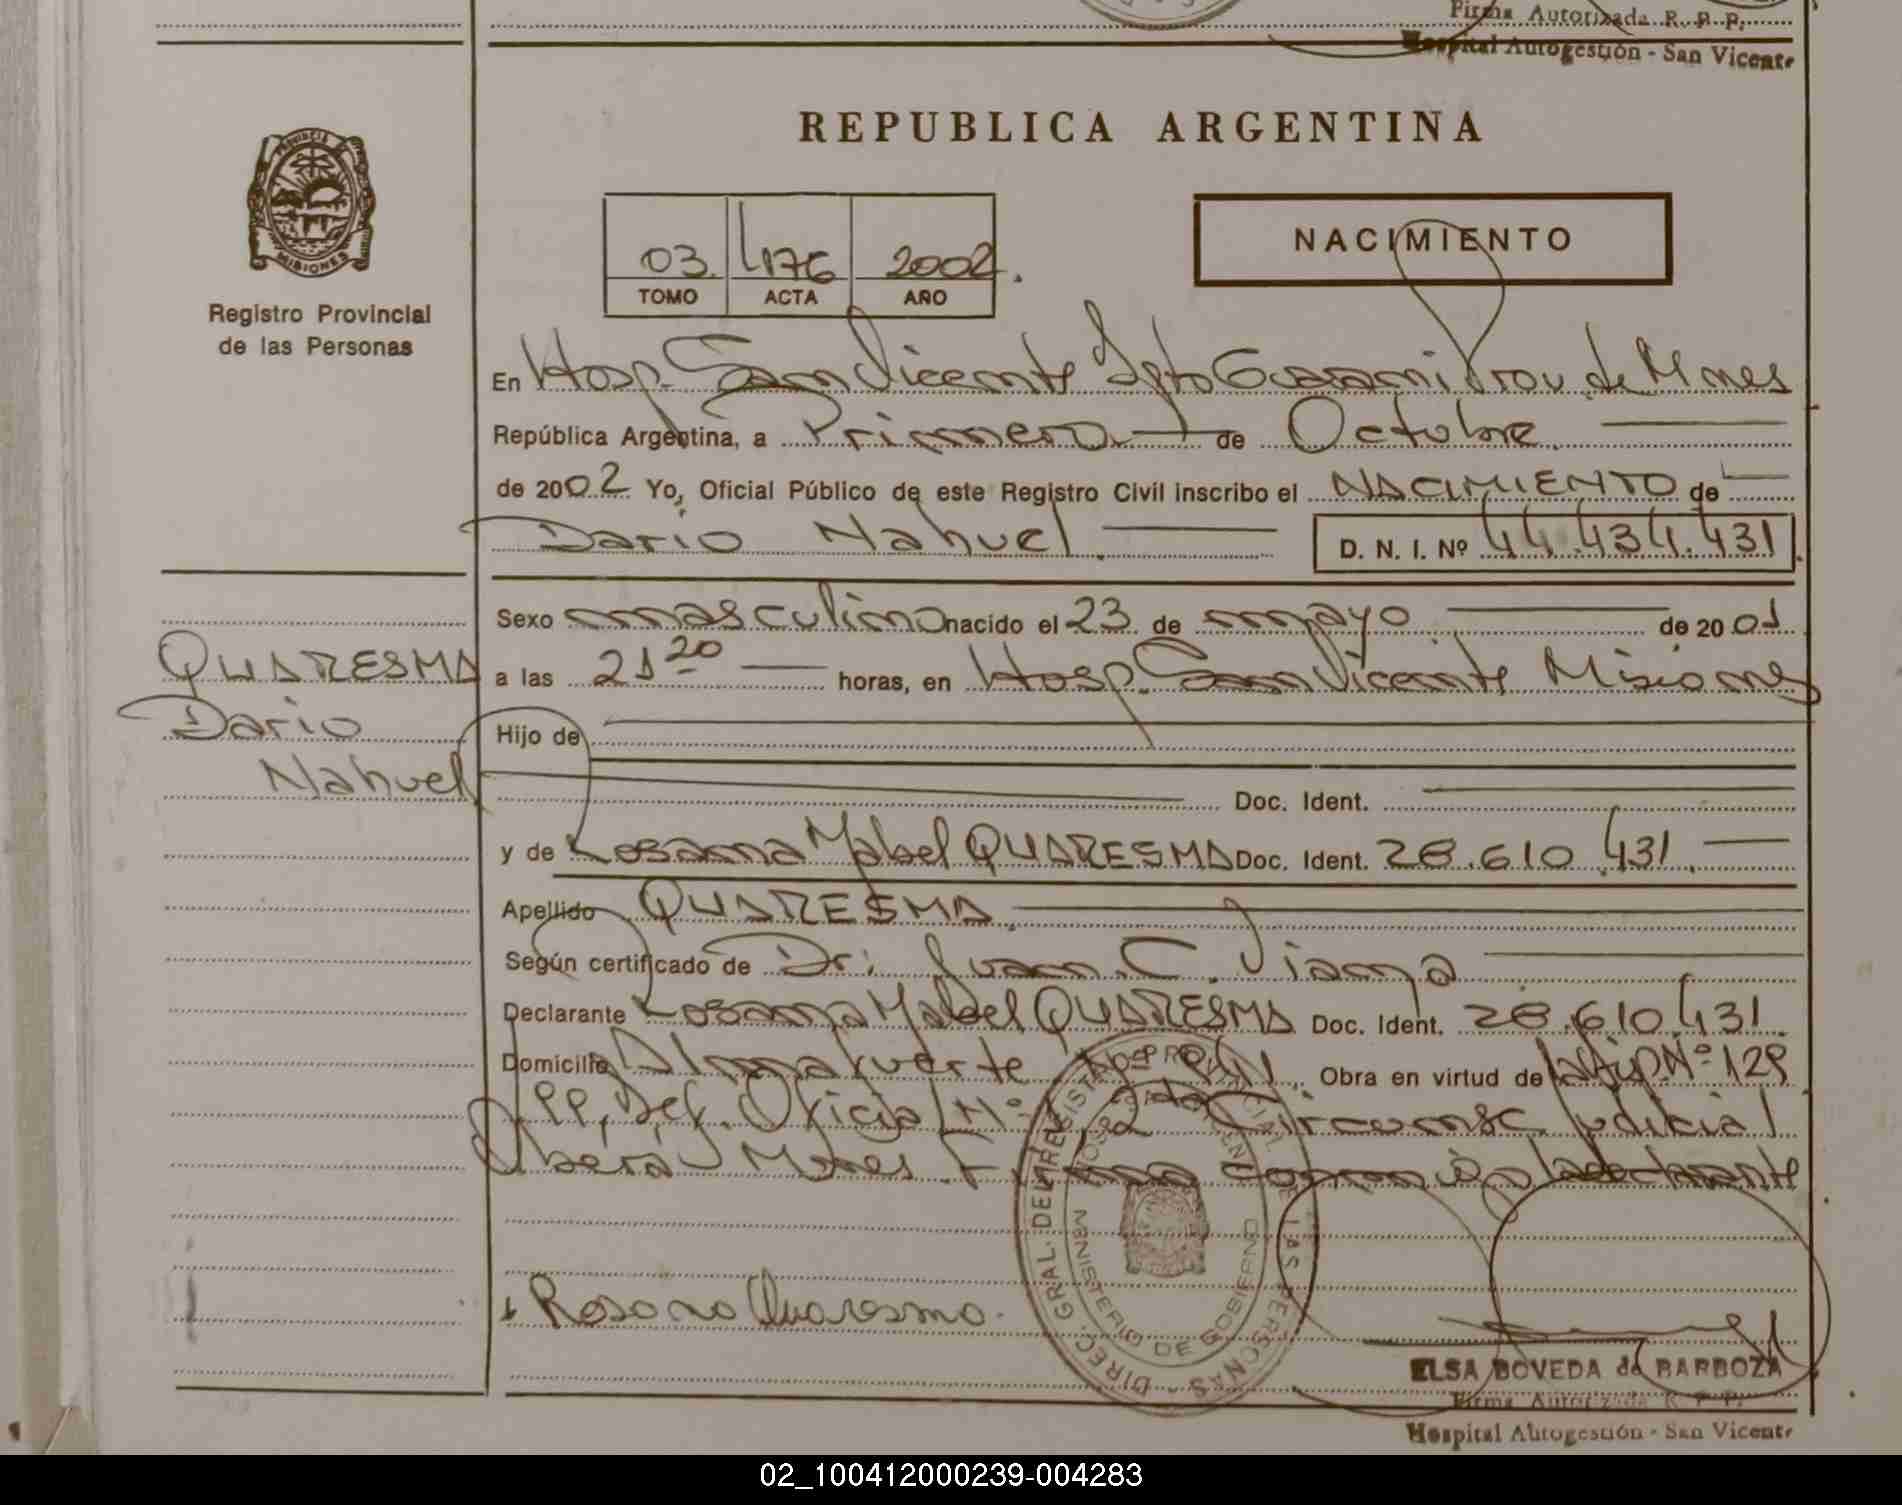 Firma Autorizada R. P. P.
Hospital Autogestión - San Vicente
REPUBLICA ARGENTINA
PROVINCIA DE
MISIONES
Registro Provincial
de las Personas
NACIMIENTO
03. 476 2002.
TOMO ACTA AÑO
En Hosp. San Vicente Dpto Guarani Prov de Mnes
República Argentina, a Primero de Octubre
de 2002 Yo, Oficial Público de este Registro Civil inscribo el NACIMIENTO de
Dario Nahuel. D. N. I. Nº 44.434.431
Sexo masculino nacido el 23 de mayo de 2001
QUARESMA
Dario
Nahuel
a las 21 20 horas, en Hosp. San Vicente Misiones
Hijo de
Doc. Ident.
y de Rosana Mabel QUARESMA Doc. Ident. 28.610.431.
Apellido QUARESMA
Según certificado de Dr. Juan C. Viana
Declarante Rosana Mabel QUARESMA Doc. Ident. 28.610.431.
Domicilio Almafuerte Obra en virtud de Nº 129
Def. Oficial Nº 1, 2da Circunsc. Judicial
Oberá Mnes. Firma la declarante
Rosana Quaresma.
DIREC. GRAL. DEL REGISTRO PROVINCIAL DE LAS PERSONAS
MINISTERIO DE GOBIERNO
ELSA BOVEDA de BARBOZA
Firma Autorizada R. P. P.
Hospital Autogestión - San Vicente
02_100412000239-004283